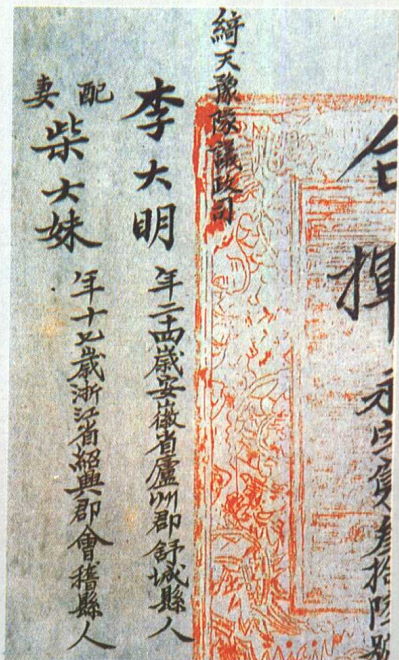 合揮
叁拾陸號
綺天豫隊議政司
李大明 年二十四歲安徽省廬州郡舒城縣人
配妻柴大妹 年十七歲浙江省紹興郡會稽縣人